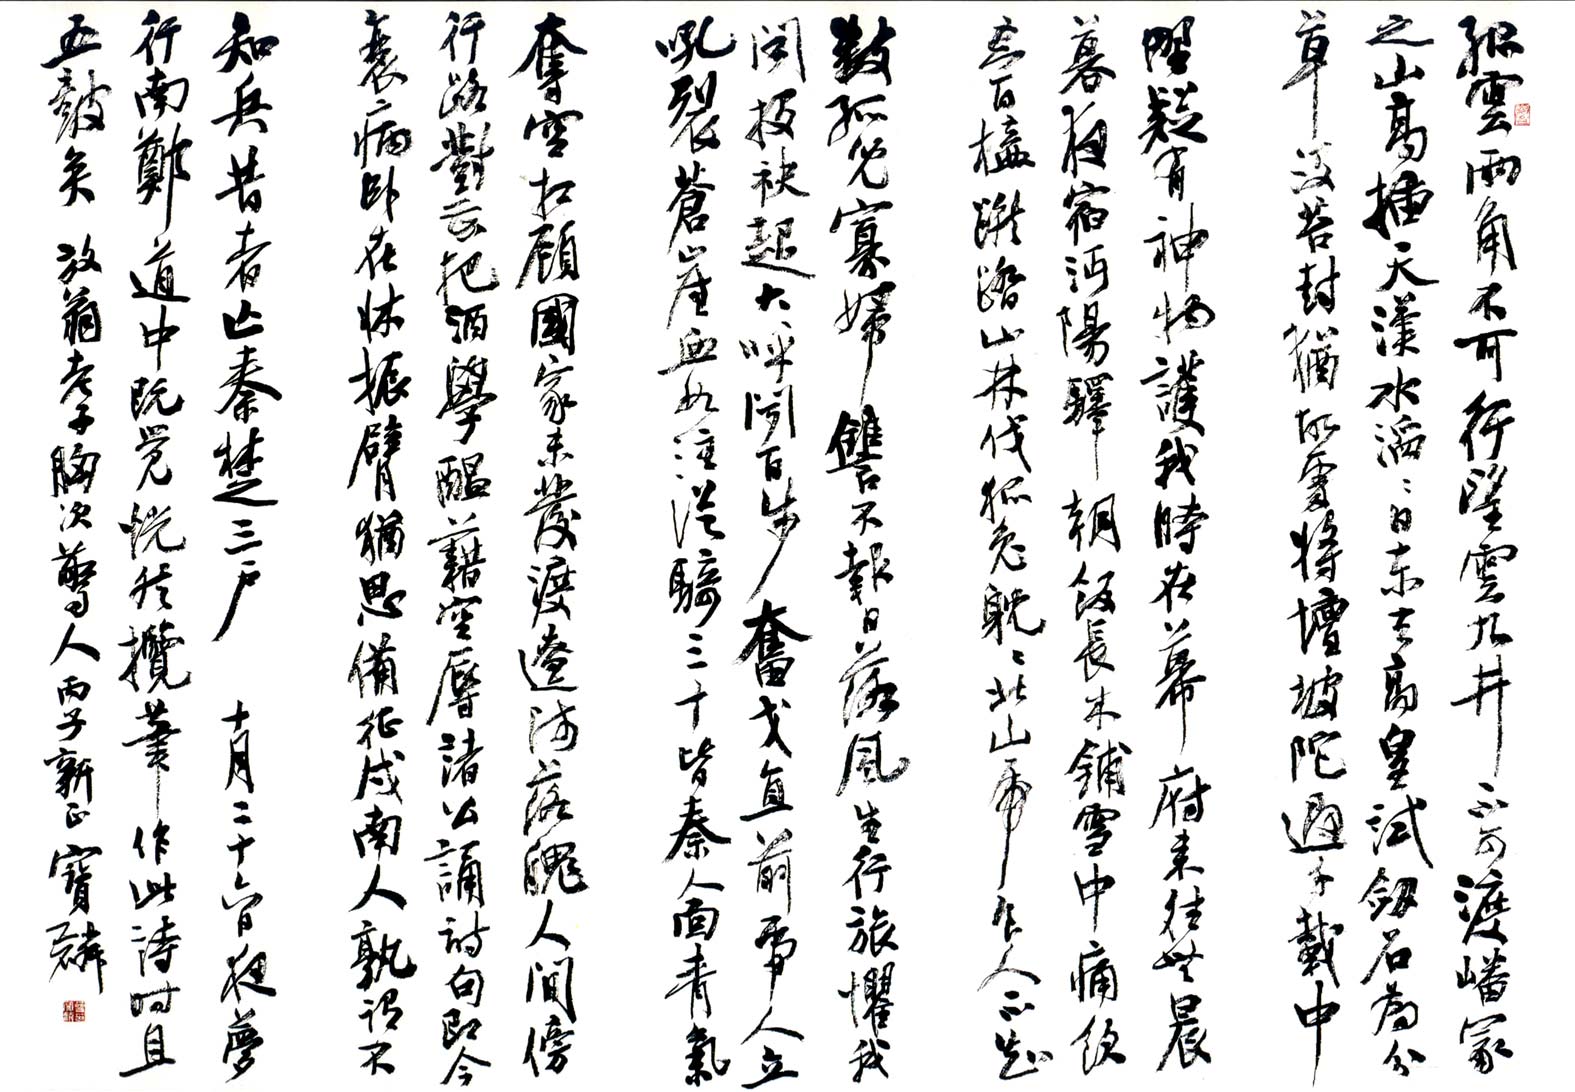 孤雲兩角不可行望雲九井不可渡嶓冢
之山高插天漢水滔〻日東去高皇試劍石為分
草沒苔封猶故處將壇坡陀過千載中
野疑有神物護我時在幕府來往無晨
暮夜宿沔陽驛朝飯長木鋪雪中痛飲
百榼蹴踏山林伐狐兔眈〻北山虎食人不知
數孤兒寡婦讎不報日落風生行旅懼我
聞投袂起大呼聞百步奮戈直前虎人立
吼裂蒼崖血如注從騎三十皆秦人面青氣
奪空相顧國家未發渡遼師落魄人間傍
行路對花把酒學醞藉空辱諸公誦詩句即今
衰病臥在牀振臂猶思備征戍南人孰謂不
知兵昔者亡秦楚三戶 十月二十六日夜夢
行南鄭道中既覺恍然攬筆作此詩时且
五鼓矣 放翁老子胸次驚人丙子新正寶磷